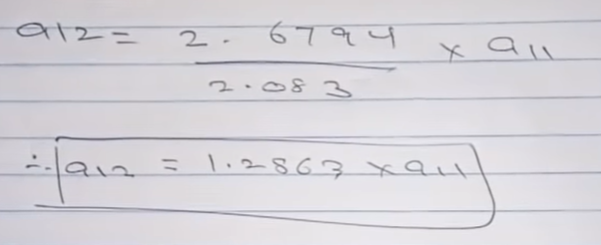 a12 = 2.6794 / 2.083 × a11
∴ a12 = 1.2863 × a11